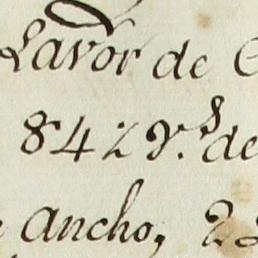 Lavor de
84 ½ v.s de
ancho, 2